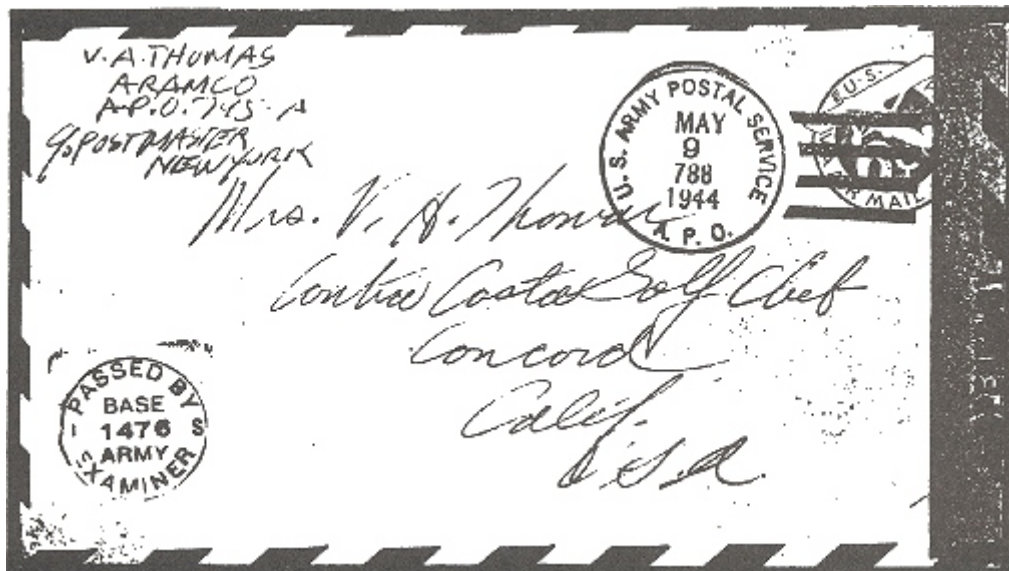 V. A. THOMAS
ARAMCO
A.P.O. 745-A
% POSTMASTER
NEW YORK
U.S. ARMY POSTAL SERVICE
MAY
9
788
1944
A. P. O.
U.S.
AIR MAIL
Mrs. V. A. Thomas
Contra Costa Golf Club
Concord
Calif.
U.S.A.
PASSED BY
BASE
1476
ARMY
EXAMINER